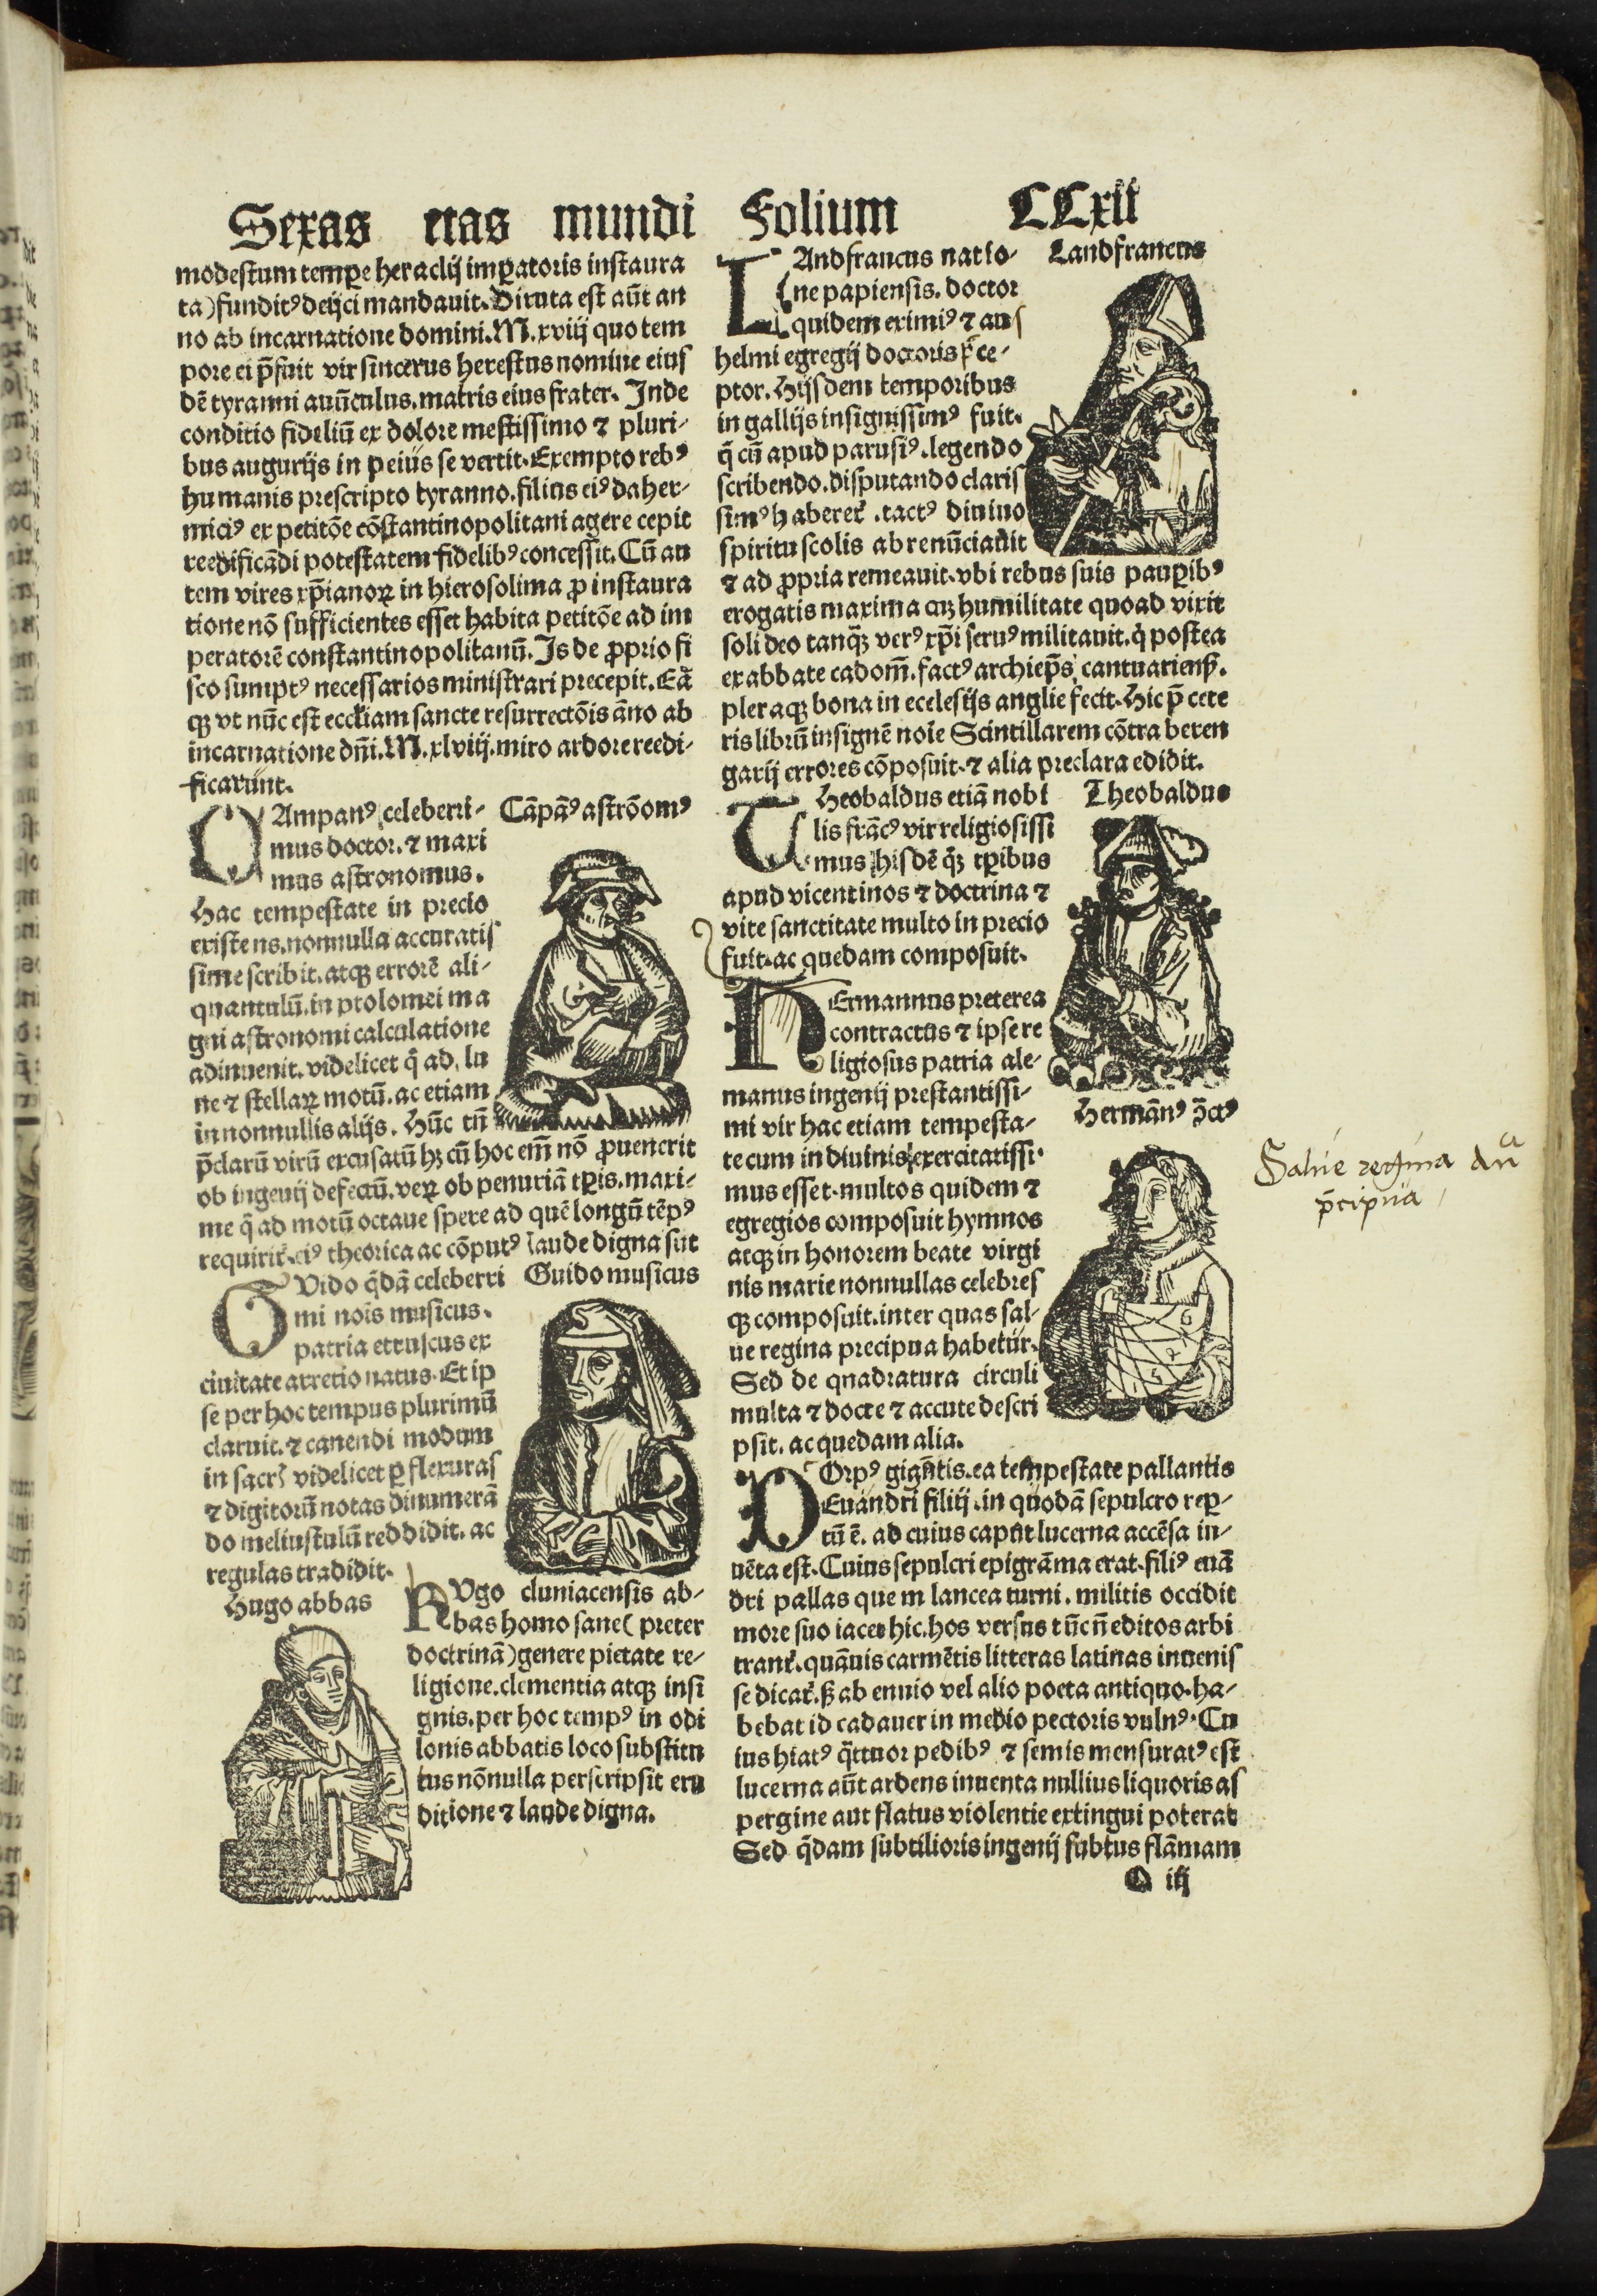 Sexas etas mundi Folium CCxii
modestum tempꝑe heraclij imꝑatoris instaura
ta) funditꝰ deijci mandauit. Diruta est aūt an
no ab incarnatione domini. M. xviij quo tem
pore ei p̄fuit vir sincerus herestus nomine eius
dē tyranni auūculus. matris eius frater. Inde
conditio fideliū ex dolore mestissimo ⁊ pluri-
bus augurijs in peius se vertit. Exempto rebꝰ
humanis prescripto tyranno. filius eiꝰ daher-
miciꝰ ex petitōe cōstantinopolitani agere cepit
reedificādi potestatem fidelibꝰ concessit. Cū au
tem vires xp̄ianoꝝ in hierosolima ꝓ instaura
tione nō sufficientes esset habita petitōe ad im
peratorē constantinopolitanū. Is de ꝓprio fi
sco sumptꝰ necessarios ministrari precepit. Eā
qꝫ vt nūc est eccl̄iam sancte resurrectōis āno ab
incarnatione dn̄i. M. xlviij. miro ardore reedi-
ficarunt.
CAmpanꝰ celeberri- Cāpāꝰ astrōomꝰ
mus doctor. ⁊ maxi
mus astronomus.
Hac tempestate in precio
existens. nonnulla accuratis
sime scribit. atqꝫ errorē ali-
quantulū. in ptolomei ma
gni astronomi calculatione
adinuenit. videlicet q̄ ad. lu
ne ⁊ stellaꝝ motū. ac etiam
in nonnullis alijs. Hūc tn̄
p̄clarū virū excusatū hꝫ cū hoc em̄ nō ꝓuenerit
ob ingenij defectū. veꝝ ob penuriā tꝑis. maxi-
me q̄ ad motū octaue spere ad quē longū tēpꝰ
requirit̄. eiꝰ theorica ac cōputꝰ laude digna sūt
GVido q̄dā celeberri Guido musicus
mi nois̄ musicus.
patria etruscus ex
ciuitate arretio natus. Et ip
se per hoc tempus plurimū
claruit. ⁊ canendi modum
in sacrꝭ videlicet ꝑ flexuras
⁊ digitorū notas dinumerā
do meliustulū reddidit. ac
regulas tradidit.
Hugo abbas
HVgo cluniacensis ab-
bas homo sane (preter
doctrinā) genere pietate re-
ligione. clementia atqꝫ insi
gnis. per hoc tempꝰ in odi
lonis abbatis loco substitu
tus nōnulla perscripsit eru
ditione ⁊ laude digna.
LAndfrancus natio- Landfrancus
ne papiensis. doctor
quidem eximiꝰ ⁊ ans
helmi egregij doctoris p̄ce-
ptor. Hijsdem temporibus
in gallijs insignissimꝰ fuit.
q̄ cū apud parusiꝰ. legendo
scribendo. disputando claris
simꝰ haberet̄. tactꝰ diuino
spiritu scolis abrenūciauit
⁊ ad ꝓpria remeauit. vbi rebus suis pauꝑibꝰ
erogatis maxima cuꝫ humilitate quoad vixit
soli deo tanqꝫ verꝰ xp̄i seruꝰ militauit. q̇ postea
ex abbate cadom̄. factꝰ archiep̄s cantuarienß.
pleraqꝫ bona in ecclesijs anglie fecit. Hic p̄ cete
ris librū insignē noīe Scintillarem cōtra beren
garij errores cōposuit. ⁊ alia preclara edidit.
THeobaldus etiā nobi Theobaldus
lis frācꝰ vir religiosissi
mus hisdē qꝫ tꝑibus
apud vicentinos ⁊ doctrina ⁊
vite sanctitate multo in precio
fuit. ac quedam composuit.
HErmannus preterea
contractus ⁊ ipse re
ligiosus patria ale-
manus ingenij prestantissi-
mi vir hac etiam tempesta- Hermānꝰ ꝯ̄ctꝰ
te cum in diuinis exercitatissi-
mus esset. multos quidem ⁊
egregios composuit hymnos
atqꝫ in honorem beate virgi
nis marie nonnullas celebres
qꝫ composuit. inter quas sal-
ue regina precipua habetur.
Sed de quadratura circuli
multa ⁊ docte ⁊ accute descri
psit. ac quedam alia.
Salue regina an̄a
p̄cipua
COrpꝰ gigātis. ea tempestate pallantis
Euandri filij. in quodā sepulcro reꝑ-
tū ē. ad cuius caput lucerna accēsa in-
uēta est. Cuius sepulcri epigrāma erat. filiꝰ euā
dri pallas quem lancea turni. militis occidit
more suo iacet hic. hos versus tūc n̄ editos arbi
trant̄. quāuis carmētis litteras latinas inuenis
se dicat̄. ß ab ennio vel alio poeta antiquo. ha-
bebat id cadauer in medio pectoris vulnꝰ. Cu
ius hiatꝰ q̄ttuor pedibꝰ ⁊ semis mensuratꝰ est
lucerna aūt ardens inuenta nullius liquoris as
pergine aut flatus violentie extingui poterat
Sed q̄dam subtilioris ingenij subtus flāmam
Q iij